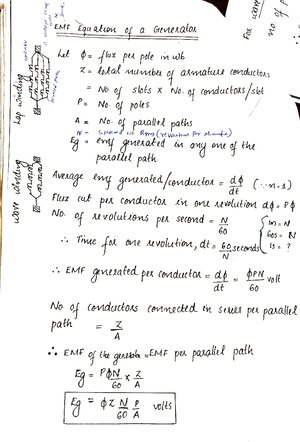 EMF Equation of a Generator
Let φ = flux per pole in wb
Z = total number of armature conductors
= No of slots x No. of conductors/slot
P = No of poles
A = No. of parallel paths
N = Speed in Rpm (revolution per minute)
Eg = emf generated in any one of the
parallel path
Average emf generated/conductor = dφ/dt (∵ n=1)
Flux cut per conductor in one revolution dφ = Pφ
No. of revolutions per second = N/60
1m = N
60s = N
1s = ?
∴ Time for one revolution, dt = 60/N seconds
∴ EMF generated per conductor = dφ/dt = φPN/60 volt
No of conductors connected in series per parallel
path = Z/A
∴ EMF of the generator = EMF per parallel path
Eg = PφN/60 x Z/A
Eg = φZ N/60 P/A volts
Lap winding
wave winding
For wave
no of p